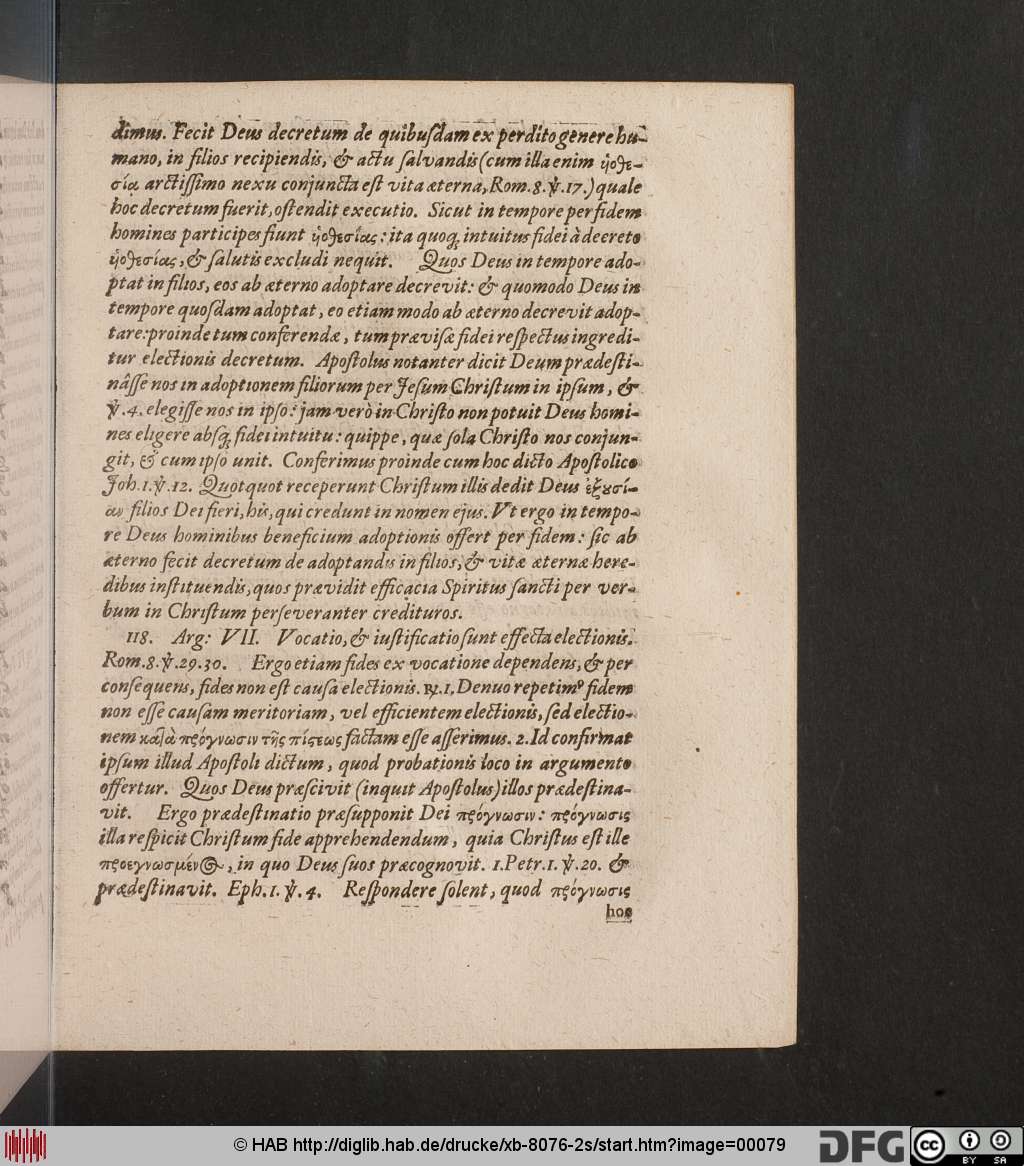 dimus. Fecit Deus decretum de quibuſdam ex perdito genere hu-
mano, in filios recipiendis, & actu ſalvandis (cum illa enim ὑοθε-
σία arctiſſimo nexu conjuncta eſt vita æterna, Rom. 8. ꝟ. 17.) quale
hoc decretum fuerit, oſtendit executio. Sicut in tempore per fidem
homines participes fiunt ὑοθεσίας: ita quoq; intuitus fidei à decreto
ὑοθεσίας, & ſalutis excludi nequit. Quos Deus in tempore ado-
ptat in filios, eos ab æterno adoptare decrevit: & quomodo Deus in
tempore quoſdam adoptat, eo etiam modo ab æterno decrevit adop-
tare: proinde tum conferendæ, tum præviſæ fidei reſpectus ingredi-
tur electionis decretum. Apoſtolus notanter dicit Deum prædeſti-
nâſſe nos in adoptionem filiorum per Jeſum Chriſtum in ipſum, &
ꝟ. 4. elegiſſe nos in ipſo: jam verò in Chriſto non potuit Deus homi-
nes eligere absq; fidei intuitu: quippe, quæ ſola Chriſto nos conjun-
git, & cum ipſo unit. Conferimus proinde cum hoc dicto Apoſtolico
Joh. 1. ꝟ. 12. Quotquot receperunt Chriſtum illis dedit Deus ἐξουσί-
αν filios Dei fieri, his, qui credunt in nomen ejus. Vt ergo in tempo-
re Deus hominibus beneficium adoptionis offert per fidem: ſic ab
æterno fecit decretum de adoptandis in filios, & vitæ æternæ here-
dibus inſtituendis, quos prævidit efficacia Spiritus ſancti per ver-
bum in Chriſtum perſeveranter credituros.
118. Arg: VII. Vocatio, & iuſtificatio ſunt effecta electionis.
Rom. 8. ꝟ. 29. 30. Ergo etiam fides ex vocatione dependens, & per
conſequens, fides non eſt cauſa electionis. ℞. 1. Denuo repetimꝰ fidem
non eſſe cauſam meritoriam, vel efficientem electionis, ſed electio-
nem κατὰ πρόγνωσιν τῆς πίστεως factam eſſe aſſerimus. 2. Id confirmat
ipſum illud Apoſtoli dictum, quod probationis loco in argumento
offertur. Quos Deus præſcivit (inquit Apoſtolus) illos prædeſtina-
vit. Ergo prædeſtinatio præſupponit Dei πρόγνωσιν: πρόγνωσις
illa reſpicit Chriſtum fide apprehendendum, quia Chriſtus eſt ille
προεγνωσμένος, in quo Deus ſuos præcognovit. 1. Petr. 1. ꝟ. 20. &
prædeſtinavit. Eph. 1. ꝟ. 4. Reſpondere ſolent, quod πρόγνωσις
hoc
© HAB http://diglib.hab.de/drucke/xb-8076-2s/start.htm?image=00079
DFG
cc
BY SA